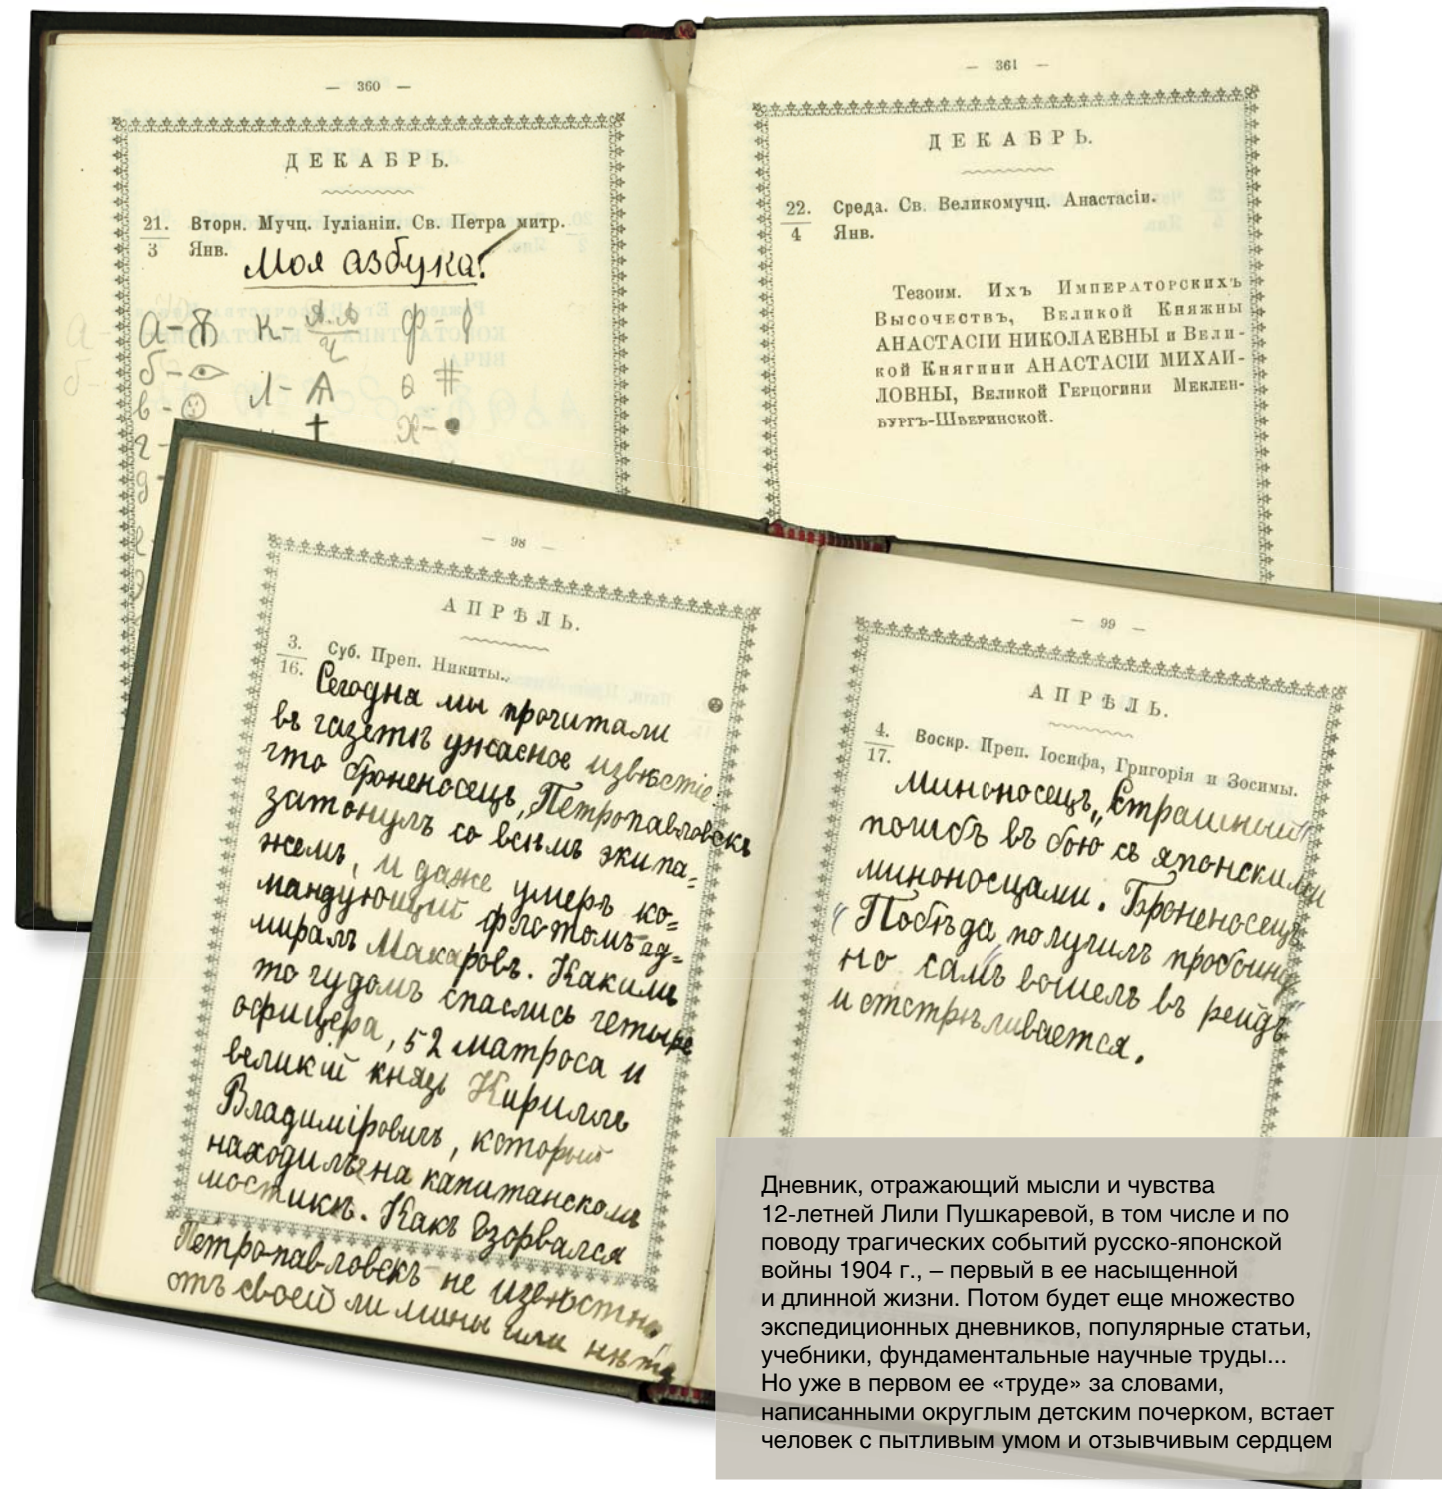 — 360 —
ДЕКАБРЬ.
21. Вторн. Мучц. Іуліаніи. Св. Петра митр.
3 Янв.
Моя азбука!
а- к- ф-
б-
в- л-
г- х-
д-
— 361 —
ДЕКАБРЬ.
22. Среда. Св. Великомучц. Анастасіи.
4 Янв.
Тезоим. Ихъ Императорскихъ
Высочествъ, Великой Княжны
АНАСТАСІИ НИКОЛАЕВНЫ и Вели-
кой Княгини АНАСТАСІИ МИХАИ-
ЛОВНЫ, Великой Герцогини Меклен-
бургъ-Шверинской.
— 98 —
АПРѢЛЬ.
3. Суб. Преп. Никиты.
16.
Сегодня мы прочитали
въ газетѣ ужасное извѣстіе
что броненосецъ „Петропавловскъ
затонулъ со всѣмъ экипа=
жемъ, и даже умеръ ко=
мандующій флотомъ ад=
миралъ Макаровъ. Какимъ
то чудомъ спаслись четыре
офицера, 52 матроса и
великій князь Кириллъ
Владиміровичъ, который
находилъ на капитанскомъ
мостикѣ. Какъ взорвался
Петропавловскъ не извѣстно
отъ своей ли мины или нѣтъ
— 99 —
АПРѢЛЬ.
4. Воскр. Преп. Іосифа, Григорія и Зосимы.
17.
Миноносецъ „Страшный“
погибъ въ бою съ японскими
миноносцами. Броненосецъ
„Побѣда„ получилъ пробоину
но самъ вошелъ въ рейдъ
и отстрѣливается.
Дневник, отражающий мысли и чувства
12-летней Лили Пушкаревой, в том числе и по
поводу трагических событий русско-японской
войны 1904 г., – первый в ее насыщенной
и длинной жизни. Потом будет еще множество
экспедиционных дневников, популярные статьи,
учебники, фундаментальные научные труды...
Но уже в первом ее «труде» за словами,
написанными округлым детским почерком, встает
человек с пытливым умом и отзывчивым сердцем